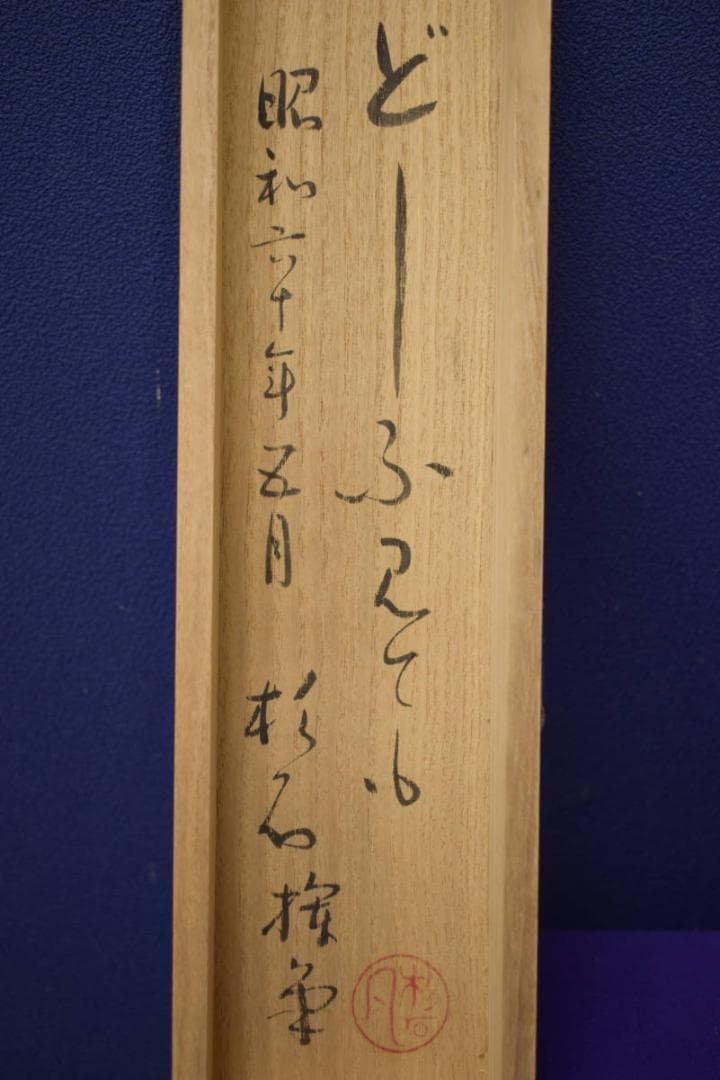 どーふ見ても
昭和六十年五月 杉石